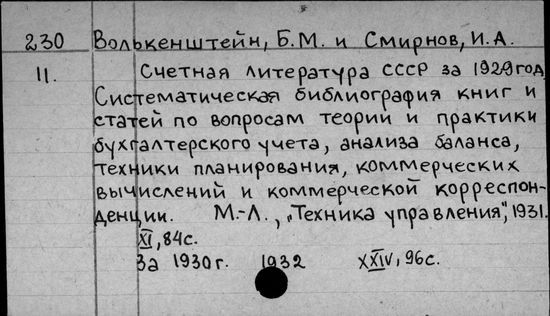 230 Волькенштейн, Б.М. и Смирнов, И.А.
11. Счетная литература СССР за 1929 год.
Систематическая библиография книг и
статей по вопросам теории и практики
бухгалтерского учета, анализа баланса,
техники планирования, коммерческих
вычислений и коммерческой корреспон-
денции. М.-Л., „Техника управления", 1931.
XI, 84с.
За 1930г. 1932 XXIV, 96с.